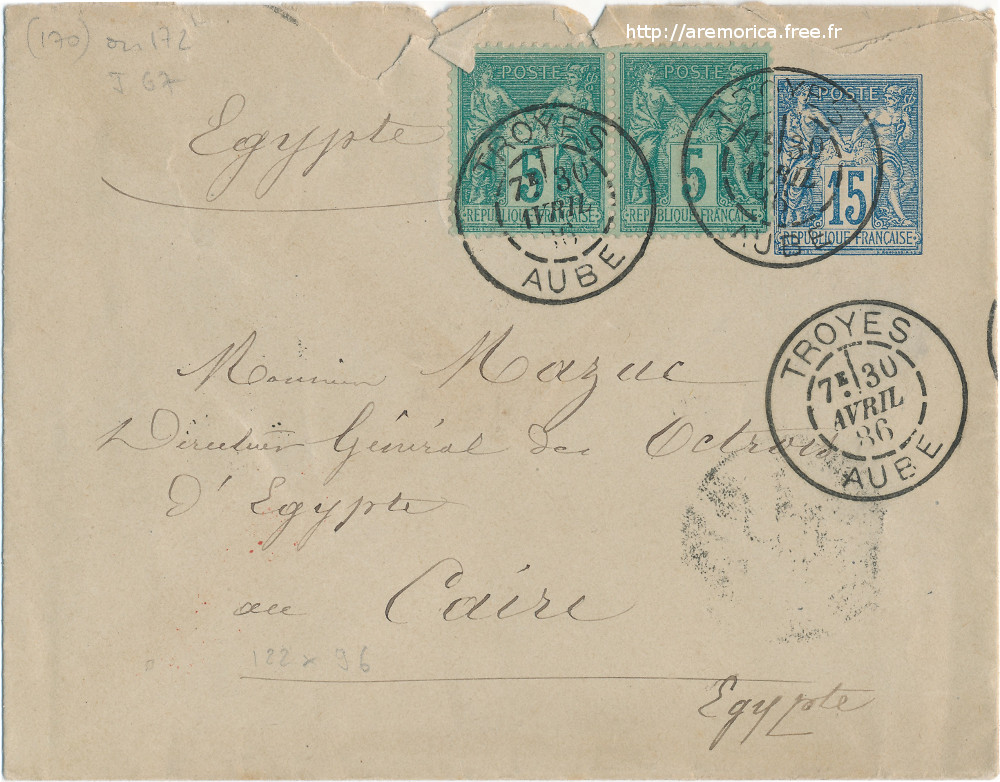 http://aremorica.free.fr
(170) ou 172
J 67
Egypte
POSTE
5
REPUBLIQUE FRANÇAISE
POSTE
5
REPUBLIQUE FRANÇAISE
POSTE
15
REPUBLIQUE FRANÇAISE
TROYES
7E 30
AVRIL
AUBE
TROYES
7E 30
AVRIL
AUBE
TROYES
7E 30
AVRIL
86
AUBE
Monsieur Mazuc
Directeur Général des Octrois
d'Egypte
au Caire
122 x 96
Egypte